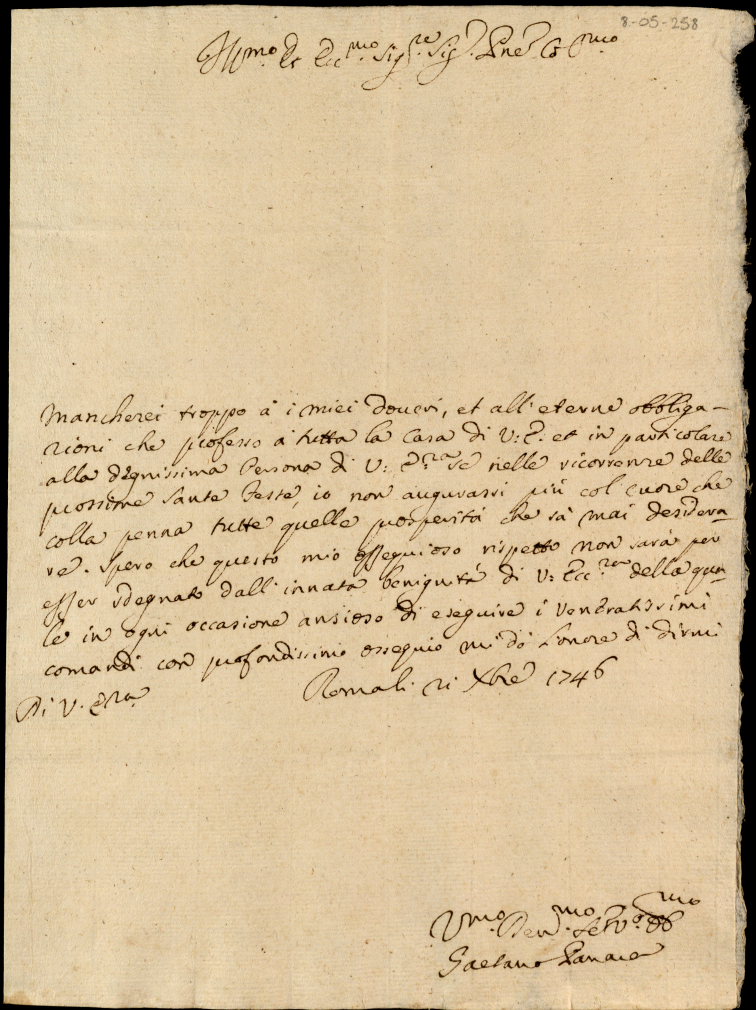 8-05-258
Ill.mo Et Ecc.mo Sig.re Sig.r P.ne Co.mo
Mancherei troppo à i miei doveri, et all'eterne obbliga-
zioni che professo à tutta la Casa di V: E. et in particolare
alla dignissima Persona di V: E.za se nelle ricorrenze delle
prossime Sante Feste, io non augurassi più col cuore che
colla penna tutte quelle prosperità che sà mai desidera-
re. Spero che questo mio ossequioso rispetto non sarà per
esser sdegnato dall'innata benignità di V: Ecc.za della qua-
le in ogni occasione ansioso di eseguire i Veneratissimi
comandi con profondissimo ossequio mi dò l'onore di dirmi
Di V. E.za
Roma li 21 Xbre 1746
V.mo Dev.mo Ser.v Ob.mo
Gaetano